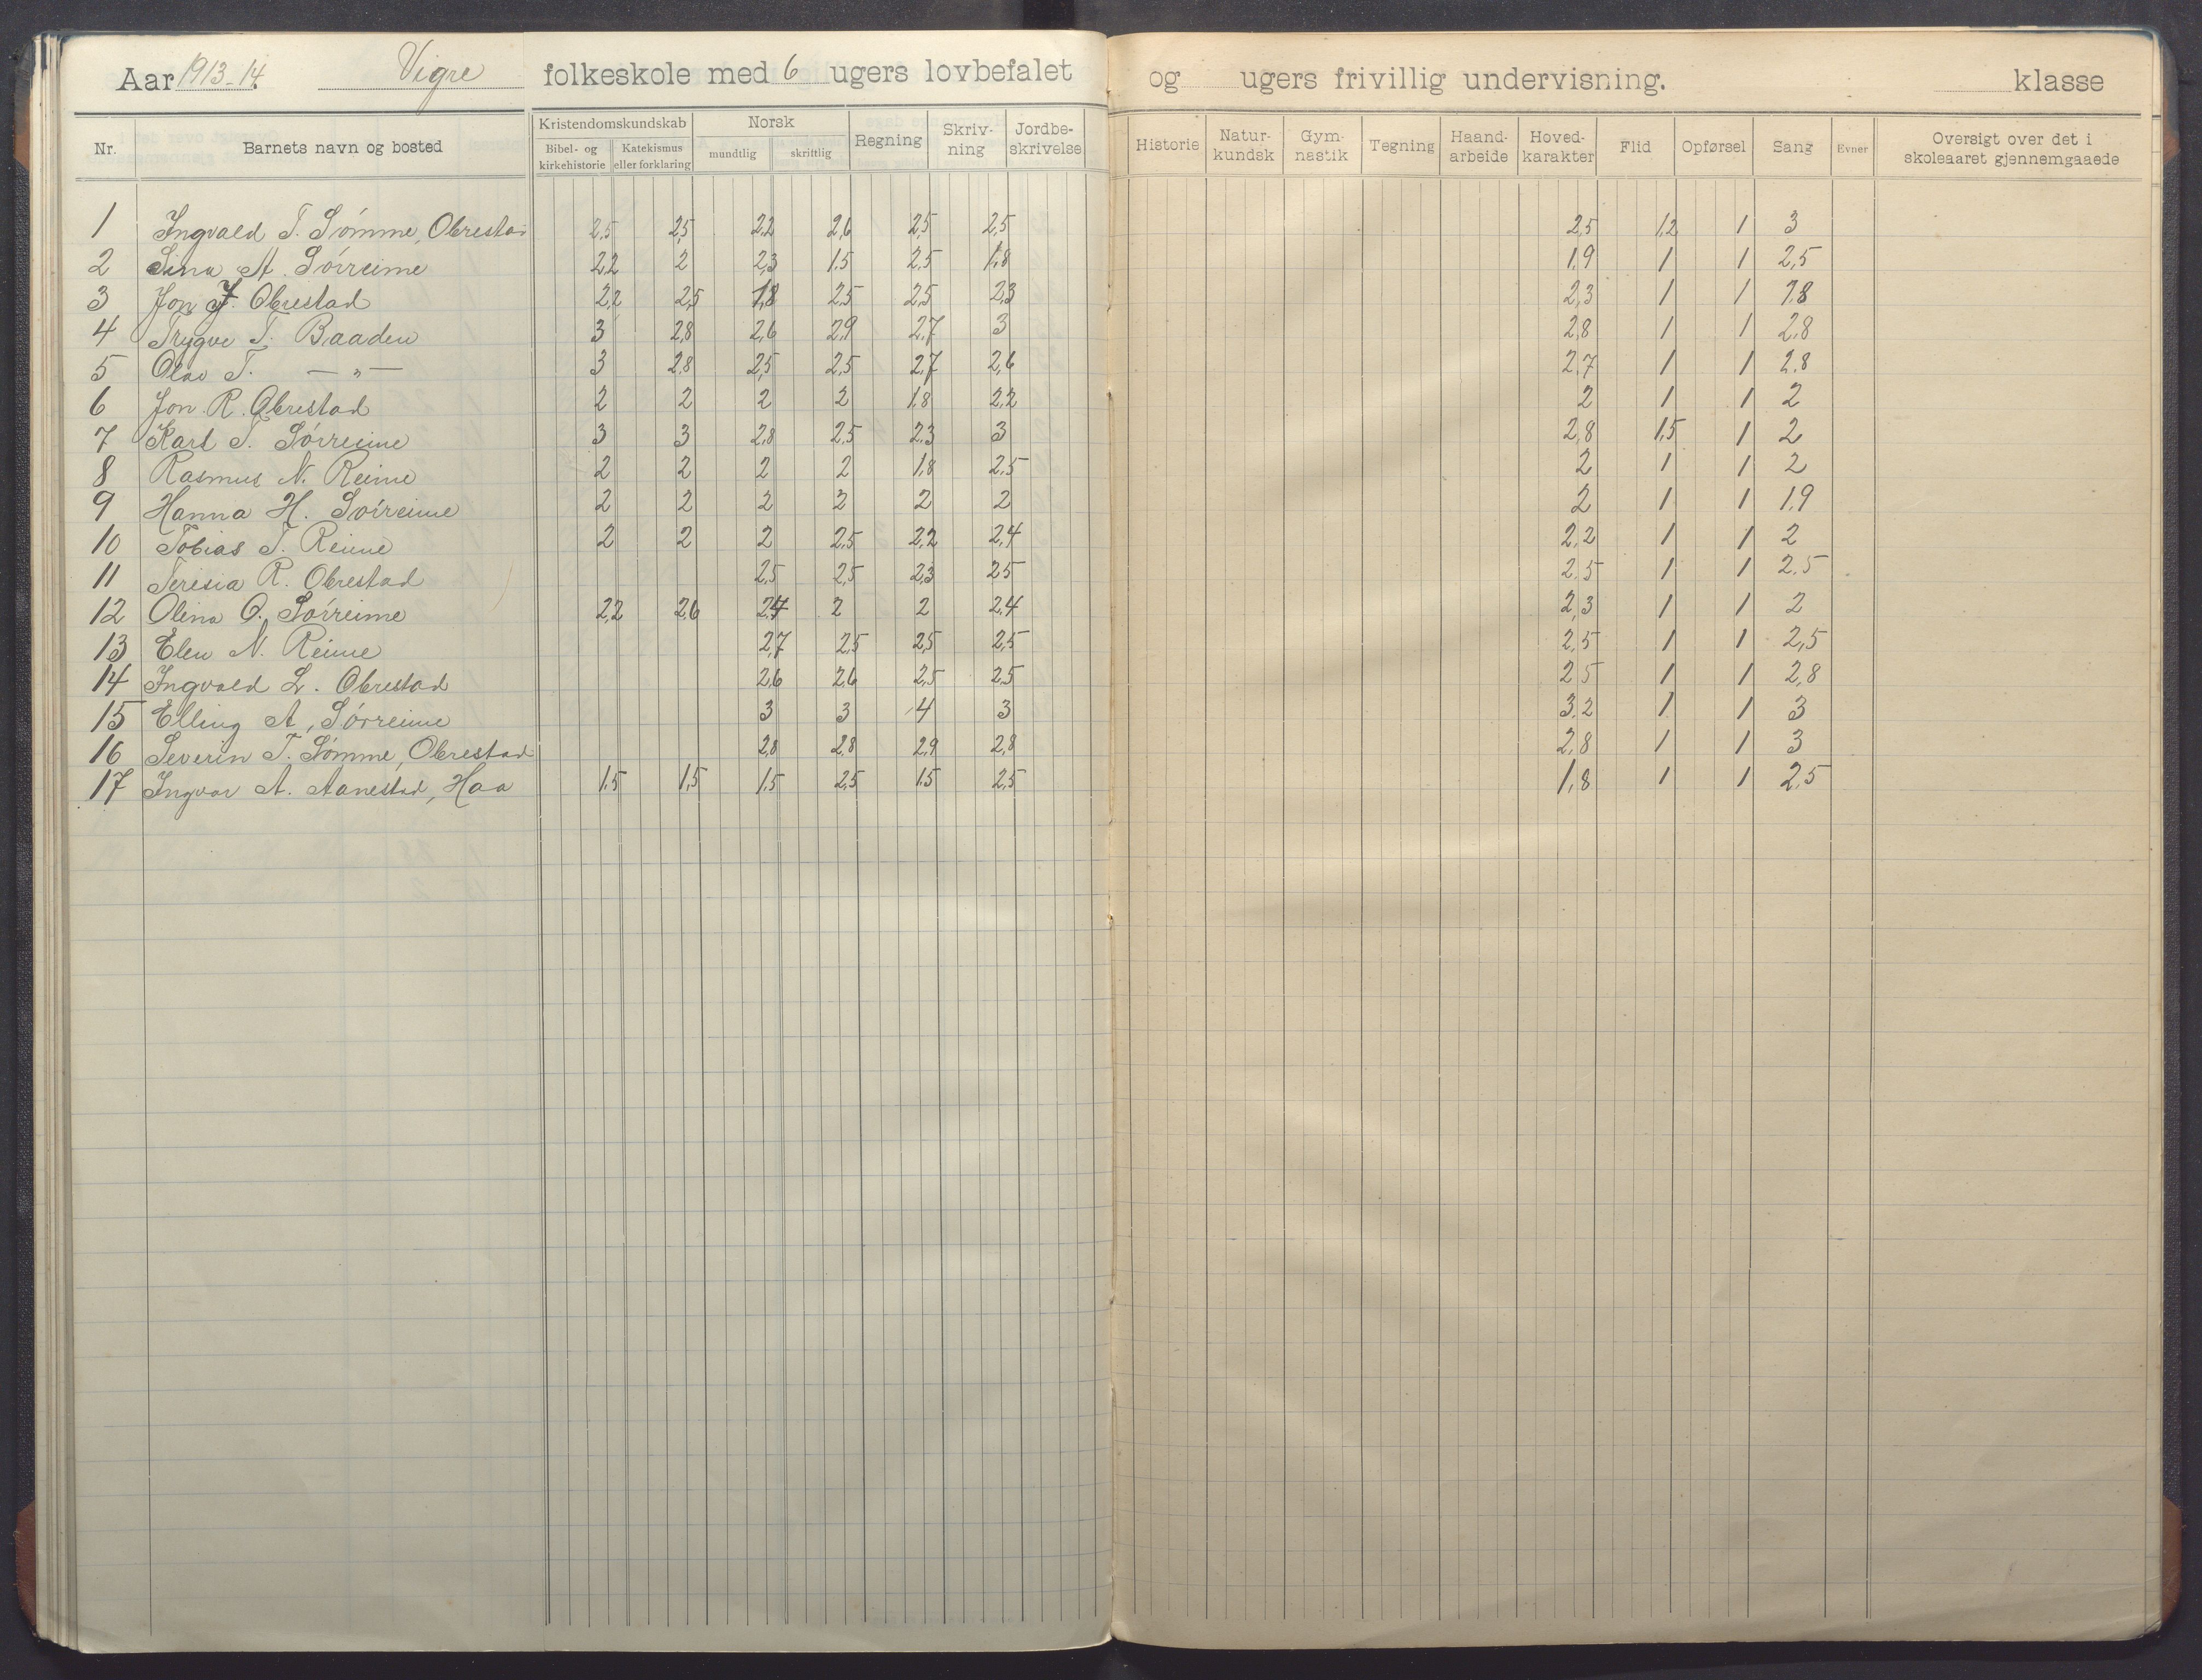 Aar 1913-14. Vigre folkeskole med 6 ugers lovbefalet og ugers frivillig undervisning. klasse
Nr. Barnets navn og bosted Kristendomskundskab Bibel- og kirkehistorie Katekismus eller forklaring Norsk mundtlig skriftlig Regning Skriv-ning Jordbe-skrivelse Historie Natur-kundsk Gym-nastik Tegning Haand-arbeide Hoved-karakter Flid Opførsel Sang Evner Oversigt over det i skoleaaret gjennemgaaede
1 Ingvald T. Sømme, Obrestad 2,5 2,5 2,2 2,6 2,5 2,5 2,5 1,2 1 3
2 Sina A. Sörreime 2,2 2 2,3 1,5 2,5 1,8 1,9 1 1 2,5
3 Jon J. Obrestad 2,2 2,5 1,8 2,5 2,5 2,3 2,3 1 1 1,8
4 Trygve T. Baaden 3 2,8 2,6 2,9 2,7 3 2,8 1 1 2,8
5 Olav T. —"— 3 2,8 2,5 2,5 2,7 2,6 2,7 1 1 2,8
6 Jon R. Obrestad 2 2 2 2 1,8 2,2 2 1 1 2
7 Karl T. Sörreime 3 3 2,8 2,5 2,3 3 2,8 1,5 1 2
8 Rasmus N. Reime 2 2 2 2 1,8 2,5 2 1 1 2
9 Hanna H. Sörreime 2 2 2 2 2 2 2 1 1 1,9
10 Tobias T. Reime 2 2 2 2,5 2,2 2,4 2,2 1 1 2
11 Teresia R. Obrestad 2,5 2,5 2,3 2,5 2,5 1 1 2,5
12 Olena O. Sörreime 2,2 2,6 2,4 2 2 2,4 2,3 1 1 2
13 Elen N. Reime 2,7 2,5 2,5 2,5 2,5 1 1 2,5
14 Ingvald L. Obrestad 2,6 2,6 2,5 2,5 2,5 1 1 2,8
15 Elling A. Sörreime 3 3 4 3 3,2 1 1 3
16 Severin T. Sömme, Obrestad 2,8 2,8 2,9 2,8 2,8 1 1 3
17 Ingvar A. Aanestad, Haa 1,5 1,5 1,5 2,5 1,5 2,5 1,8 1 1 2,5